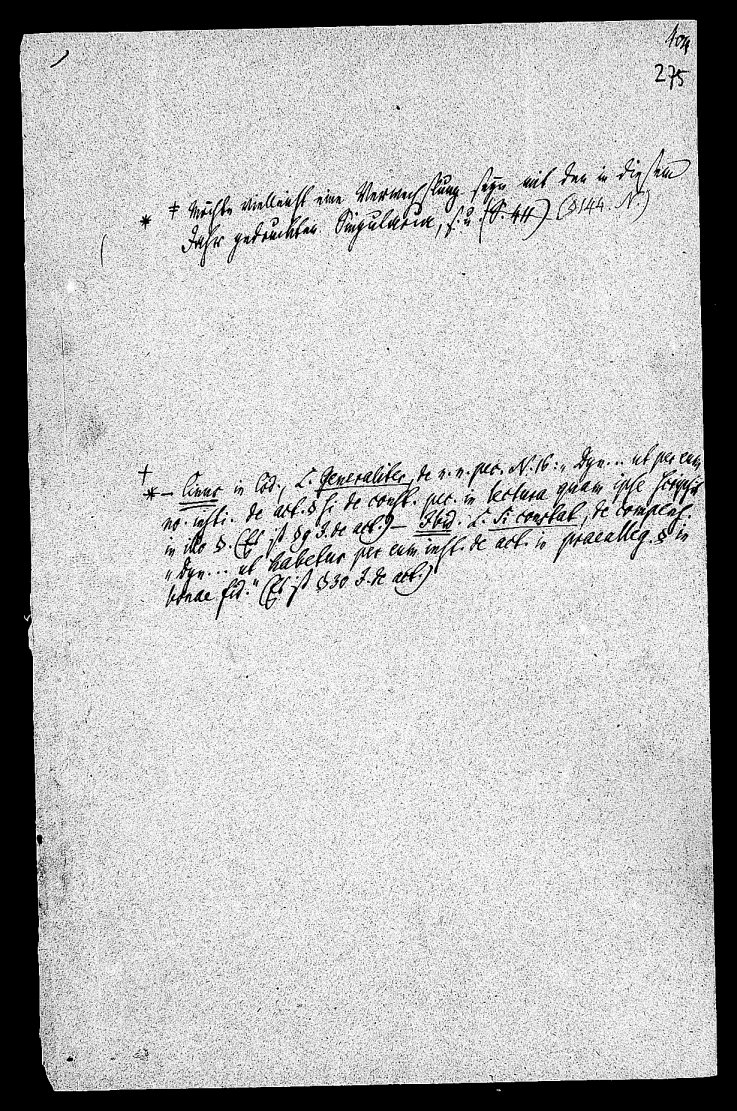 104
275
* ‡ Möchte vielleicht eine Verwechslung seyn mit den in diesem
Jahr gedruckten Singularia, s. u. (S. 44) (§ 144. N.)
+
* – Cinus in Cod., L. Generaliter, de r. r. per. N. 16: „ Dyn... ut per eum
no. insti. de act. § si de const. pec. in lectura quam ipse scripsit
in illo §. (Es ist § 9 J. de act.) – Ibid. L. Si constat, de
„ Dyn... ut habetur per eum inst. de act. in praealleg. § in
bonae fid." (Es ist § 30 J. de act.)